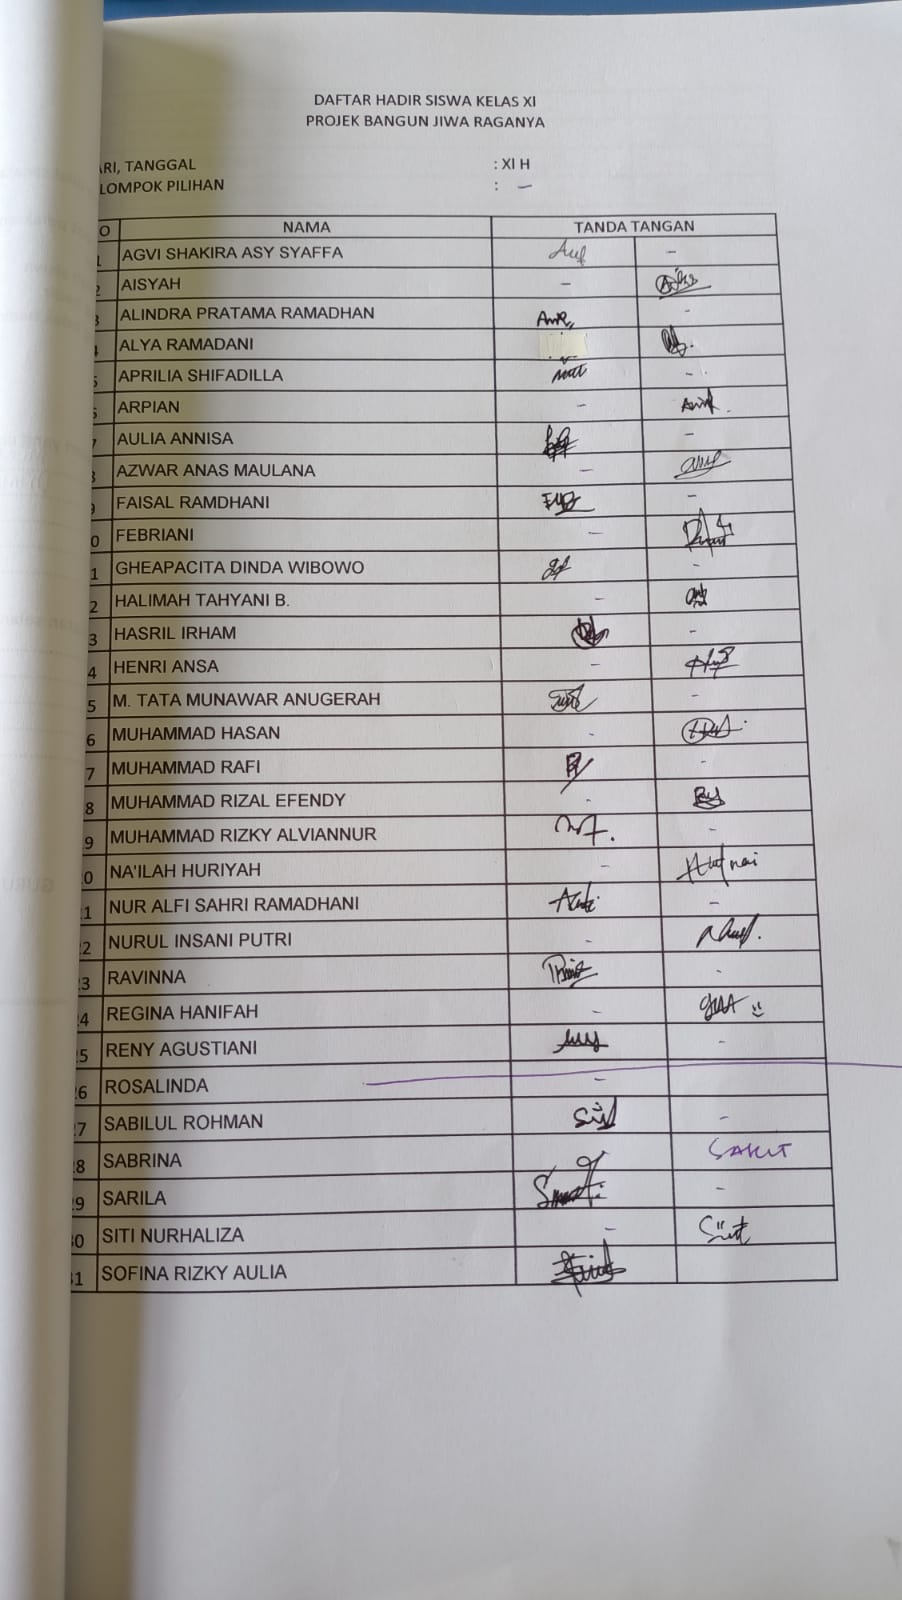 DAFTAR HADIR SISWA KELAS XI
PROJEK BANGUN JIWA RAGANYA
ARI, TANGGAL : XI H
LOMPOK PILIHAN : –
O NAMA TANDA TANGAN
1 AGVI SHAKIRA ASY SYAFFA –
2 AISYAH –
3 ALINDRA PRATAMA RAMADHAN –
4 ALYA RAMADANI
5 APRILIA SHIFADILLA –
6 ARPIAN –
7 AULIA ANNISA –
8 AZWAR ANAS MAULANA –
9 FAISAL RAMDHANI –
0 FEBRIANI –
1 GHEAPACITA DINDA WIBOWO –
2 HALIMAH TAHYANI B. –
3 HASRIL IRHAM –
4 HENRI ANSA –
5 M. TATA MUNAWAR ANUGERAH –
6 MUHAMMAD HASAN –
7 MUHAMMAD RAFI –
8 MUHAMMAD RIZAL EFENDY –
9 MUHAMMAD RIZKY ALVIANNUR –
0 NA'ILAH HURIYAH –
1 NUR ALFI SAHRI RAMADHANI –
2 NURUL INSANI PUTRI –
3 RAVINNA –
4 REGINA HANIFAH –
5 RENY AGUSTIANI –
6 ROSALINDA –
7 SABILUL ROHMAN –
8 SABRINA SAKIT
9 SARILA –
0 SITI NURHALIZA –
1 SOFINA RIZKY AULIA